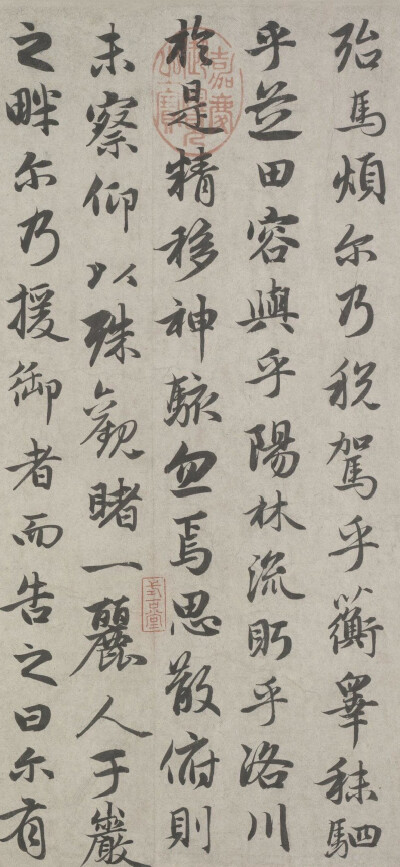 殆馬煩尔乃税駕乎蘅皋秣駟
乎芝田容與乎陽林流眄乎洛川
於是精移神駭忽焉思散俯則
未察仰以殊觀睹一麗人于巖
之畔尔乃援御者而告之曰尔有